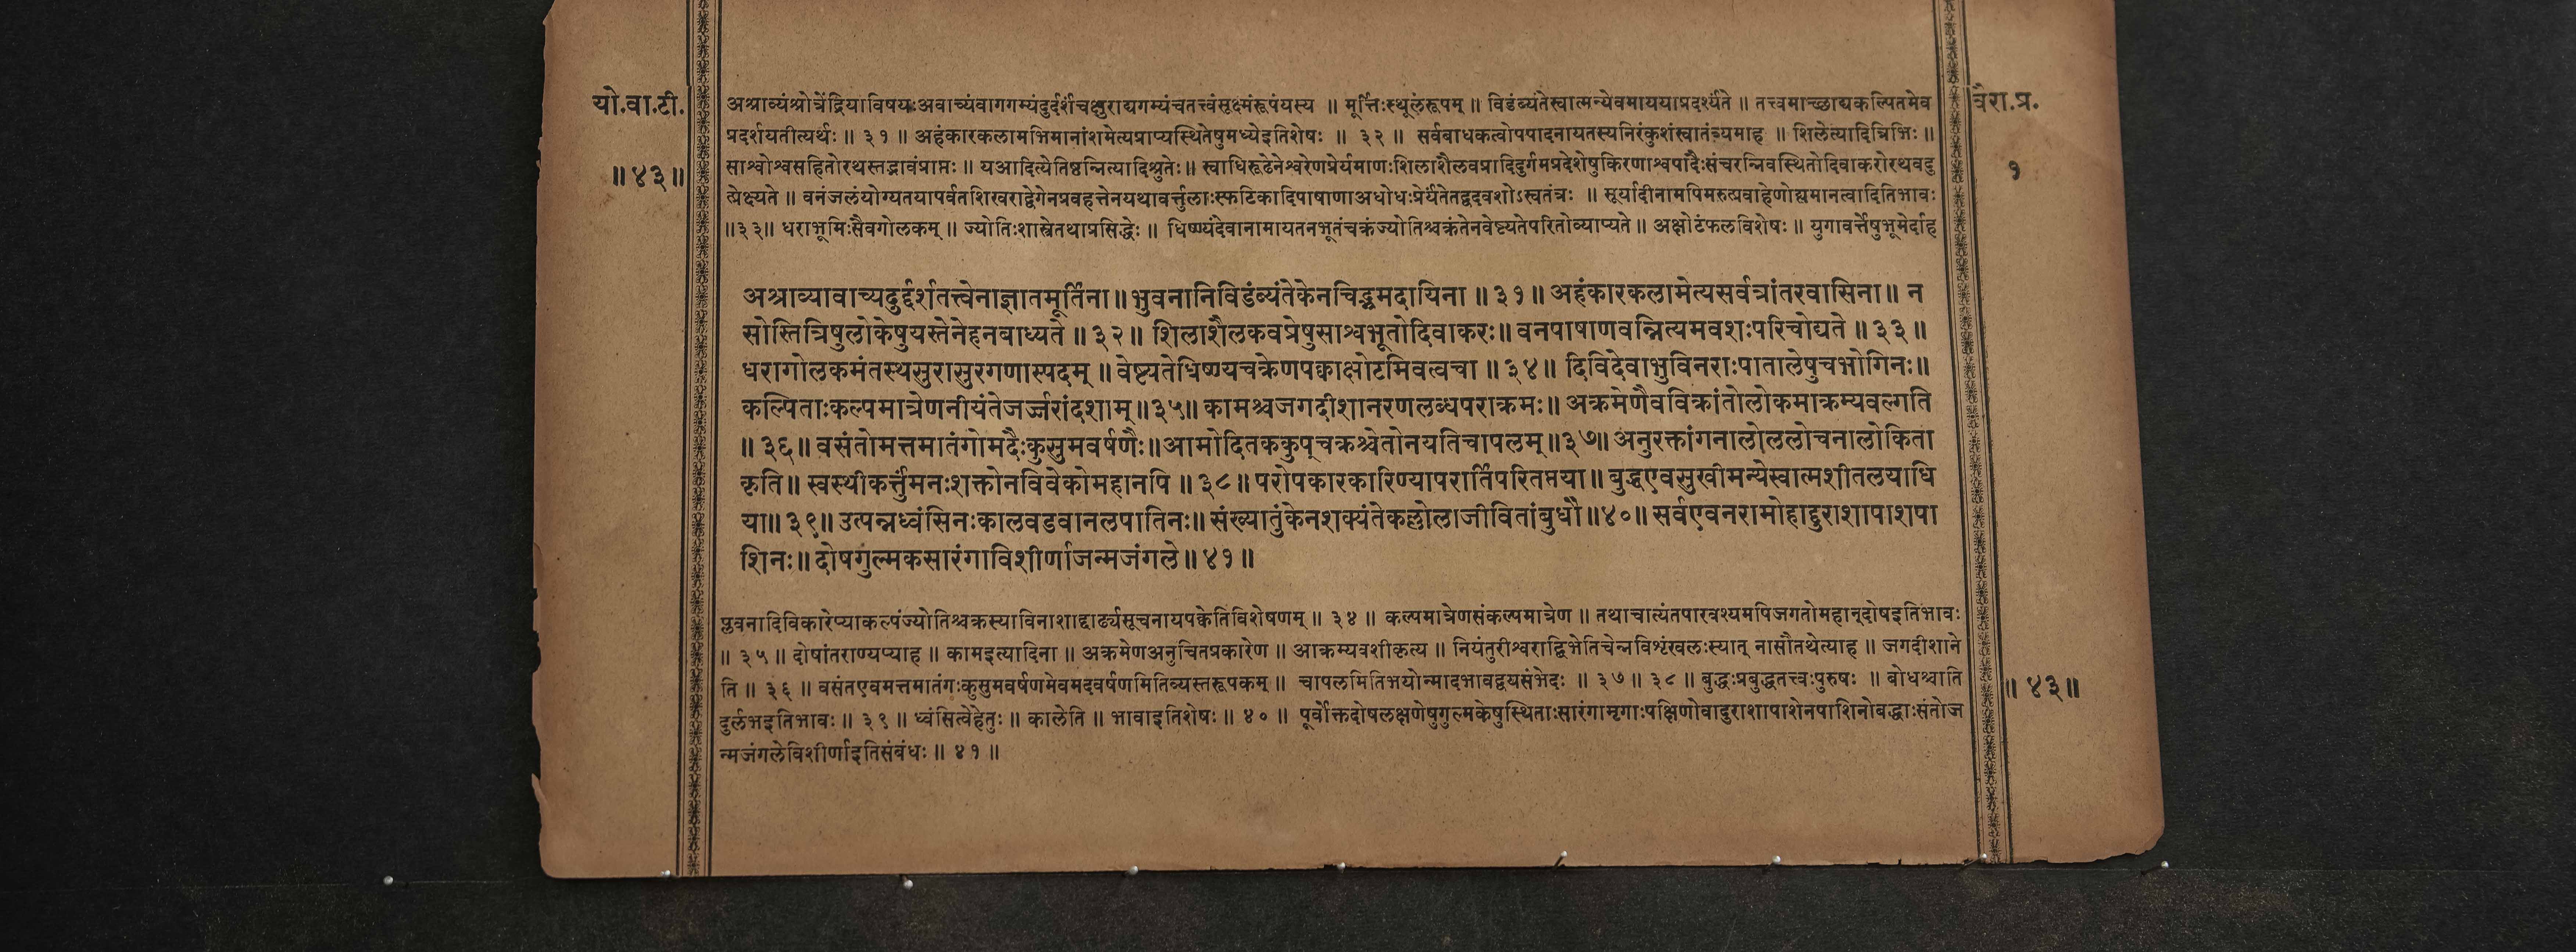 यो.वा.टी.
॥४३॥
अश्राव्यंश्रोत्रेंद्रियाविषयःअवाच्यंवागगम्यंदुर्दर्शंचक्षुराद्यगम्यंचतत्त्वंसूक्ष्मंरूपंयस्य ॥ मूर्त्तिःस्थूलंरूपम् ॥ विडंब्यंतेस्वात्मन्येवमाययाप्रदर्श्यंते ॥ तत्त्वमाच्छाद्यकल्पितमेव
प्रदर्शयतीत्यर्थः ॥ ३१ ॥ अहंकारकलामभिमानांशमेत्यप्राप्यस्थितेषुमध्येइतिशेषः ॥ ३२ ॥ सर्वबाधकत्वोपपादनायतस्यनिरंकुशंस्वातंत्र्यमाह ॥ शिलेत्यादित्रिभिः ॥
साश्वोश्वसहितोरथस्तद्भावंप्राप्तः ॥ यआदित्येतिष्ठन्नित्यादिश्रुतेः ॥ स्वाधिरूढेनेश्वरेणप्रेर्यमाणःशिलाशैलवप्रादिदुर्गमप्रदेशेषुकिरणाश्वपादैःसंचरन्निवस्थितोदिवाकरोरथवदु
त्प्रेक्ष्यते ॥ वनंजलंयोग्यतयापर्वतशिखराद्वेगेनप्रवहत्तेनयथावर्त्तुलाःस्फटिकादिपाषाणाअधोधःप्रेर्यंतेतद्वदवशोऽस्वतंत्रः ॥ सूर्यादीनामपिमरुत्प्रवाहेणोह्यमानत्वादितिभावः
॥३३॥ धराभूमिःसैवगोलकम् ॥ ज्योतिःशास्त्रेतथाप्रसिद्धेः ॥ धिष्ण्यंदेवानामायतनभूतंचक्रंज्योतिश्चक्रंतेनवेष्ट्यतेपरितोव्याप्यते ॥ अक्षोटंफलविशेषः ॥ युगावर्त्तेषुभूमेर्दाह
अश्राव्यावाच्यदुर्द्दर्शतत्त्वेनाज्ञातमूर्तिना ॥ भुवनानिविडंब्यंतेकेनचिद्भ्रमदायिना ॥ ३१ ॥ अहंकारकलामेत्यसर्वत्रांतरवासिना ॥ न
सोस्तित्रिषुलोकेषुयस्तेनेहनबाध्यते ॥ ३२ ॥ शिलाशैलकवप्रेषुसाश्वभूतोदिवाकरः ॥ वनपाषाणवन्नित्यमवशःपरिचोद्यते ॥ ३३ ॥
धरागोलकमंतस्थसुरासुरगणास्पदम् ॥ वेष्ट्यतेधिष्ण्यचक्रेणपक्वाक्षोटमिवत्वचा ॥ ३४ ॥ दिविदेवाभुविनराःपातालेषुचभोगिनः ॥
कल्पिताःकल्पमात्रेणनीयंतेजर्ज्जरांदशाम् ॥३५॥ कामश्चजगदीशानरणलब्धपराक्रमः ॥ अक्रमेणैवविक्रांतोलोकमाक्रम्यवल्गति
॥ ३६ ॥ वसंतोमत्तमातंगोमदैःकुसुमवर्षणैः ॥ आमोदितककुप्चक्रश्चेतोनयतिचापलम् ॥३७॥ अनुरक्तांगनालोललोचनालोकिता
कृति ॥ स्वस्थीकर्त्तुंमनःशक्तोनविवेकोमहानपि ॥ ३८ ॥ परोपकारकारिण्यापरार्तिपरितप्तया ॥ बुद्धएवसुखीमन्येस्वात्मशीतलयाधि
या ॥ ३९ ॥ उत्पन्नध्वंसिनःकालवडवानलपातिनः ॥ संख्यातुंकेनशक्यंतेकल्लोलाजीवितांबुधौ ॥४०॥ सर्वएवनरामोहाद्दुराशापाशपा
शिनः ॥ दोषगुल्मकसारंगाविशीर्णाजन्मजंगले ॥ ४१ ॥
प्लवनादिविकारेप्याकल्पंज्योतिश्चक्रस्याविनाशाद्दार्ढ्यसूचनायपक्वेतिविशेषणम् ॥ ३४ ॥ कल्पमात्रेणसंकल्पमात्रेण ॥ तथाचात्यंतपारवश्यमपिजगतोमहान्दोषइतिभावः
॥ ३५ ॥ दोषांतराण्यप्याह ॥ कामइत्यादिना ॥ अक्रमेणअनुचितप्रकारेण ॥ आक्रम्यवशीकृत्य ॥ नियंतुरीश्वराद्विभेतिचेन्नविशृंखलःस्यात् नासौतथेत्याह ॥ जगदीशाने
ति ॥ ३६ ॥ वसंतएवमत्तमातंगःकुसुमवर्षणमेवमदवर्षणमितिव्यस्तरूपकम् ॥ चापलमितिभयोन्मादभावद्वयसंभेदः ॥ ३७ ॥ ३८ ॥ बुद्धःप्रबुद्धतत्त्वःपुरुषः ॥ बोधश्चाति
दुर्लभइतिभावः ॥ ३९ ॥ ध्वंसित्वेहेतुः ॥ कालेति ॥ भावाइतिशेषः ॥ ४० ॥ पूर्वोक्तदोषलक्षणेषुगुल्मकेषुस्थिताःसारंगामृगाःपक्षिणोवादुराशापाशेनपाशिनोबद्धाःसंतोज
न्मजंगलेविशीर्णाइतिसंबंधः ॥ ४१ ॥
वैरा.प्र.
१
॥ ४३॥